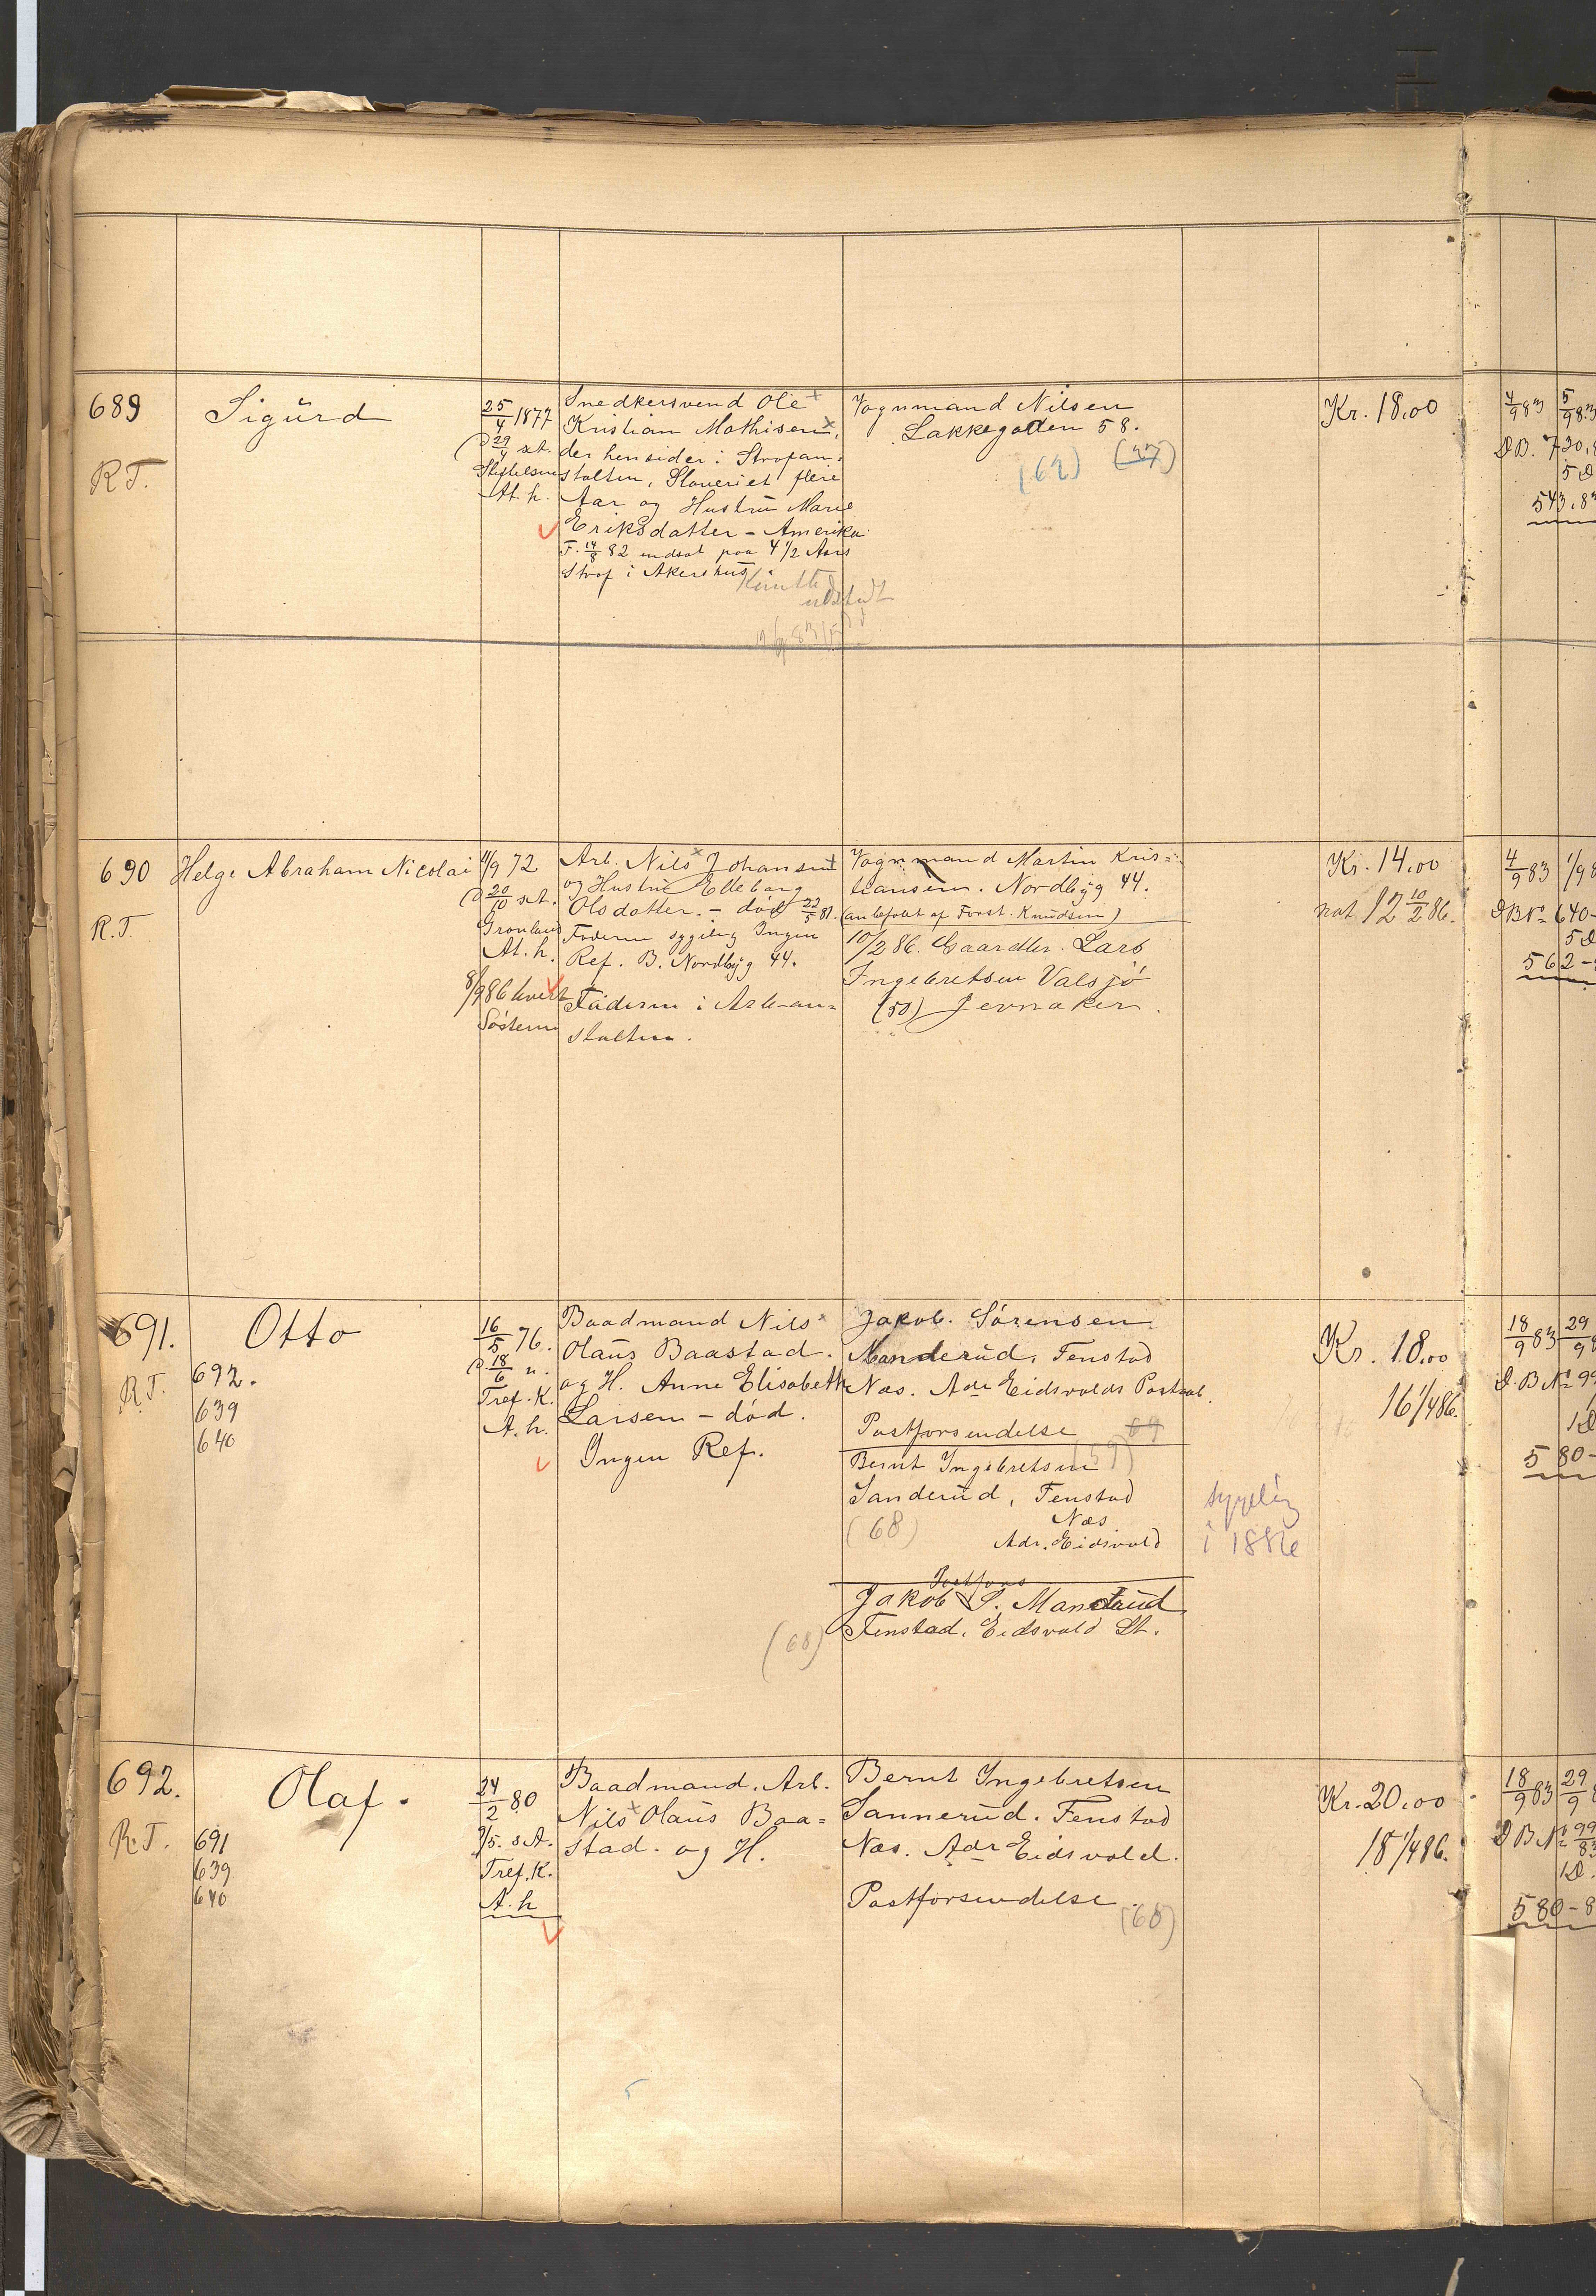 689
R.T.
Sigurd
25/4 1877
(D 29/4 s.A.
Stiftelsen
At. h.
Snedkersvend Ole
Kristian Mathisen,
der hensider i Strafan-
stalten, Slaveriet flere
Aar og Hustru Marie
Eriksdatter - Amerika
F. 14/8 82 indsat paa 4 1/2 Aars
Straf i Akershus
Vognmand Nilsen
Lakkegaden 58.
(62) (47)
Kr. 18,00
4/9 83
D.B. 720.
543.8
690
R.T.
Helge Abraham Nicolai
11/9 72
(D 20/10 s.A.
Grønland
At. h.
8/9 86 hvert
Søsteren
Arb. Nils Johansen
og Hustru Elleborg
Olsdatter. - død 22/5 81.
Faderen sygelig Ingen
Ref. B. Nordbyg 44.
Faderen i Arb-an-
stalten.
Vognmand Martin Kris-
tiansen. Nordbyg 44.
(anbefalet af Forst. Knudsen)
10/2 86. Gaardbr. Lars
Ingebretsen Valsjö
(50) Jevnaker.
Kr. 14,00
nat. 12 10/2 86.
4/9 83 1/9 8
D B No 640-
562-
691.
R.T.
692.
639
640
Otto
16/5 76.
D. 18/6 "
Tref. K.
A. h.
Baadmand Nils
Olaus Baastad.
og H. Anne Elisabeth
Larsen - død.
Ingen Ref.
Jakob Sørensen
Manderud, Fenstad
Næs. Adr Eidsvolds Postaab.
Postforsendelse 69
(59)
Bernt Ingebretsen
Sanderud, Fenstad
Næs
(68) Adr. Eidsvold
Postfors
Jakob S. Manderud
(68) Fenstad. Eidsvold St.
sygelig
i 1886
Kr. 18,00
16 1/4 86.
18/9 83 29/9
D. B No 99
1D
580-
692.
R.T.
691
639
640
Olaf.
24/2 80
9/5. s.A.
Tref. K.
A. h
Baadmand. Arb.
Nils Olaus Baa-
stad. og H.
Bernt Ingebretsen
Sannerud. Fenstad
Næs. Adr Eidsvold.
Postforsendelse.
(68)
Kr. 20,00
18 1/4 86.
18/9 83 29/9
D B No 99/83
1D.
580-8